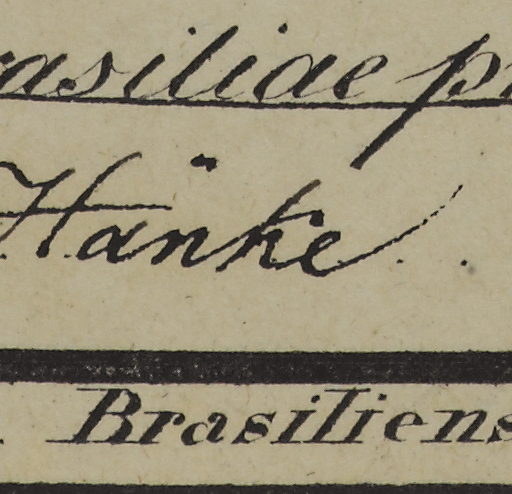 rasiliae pr
Hänke
Brasiliens